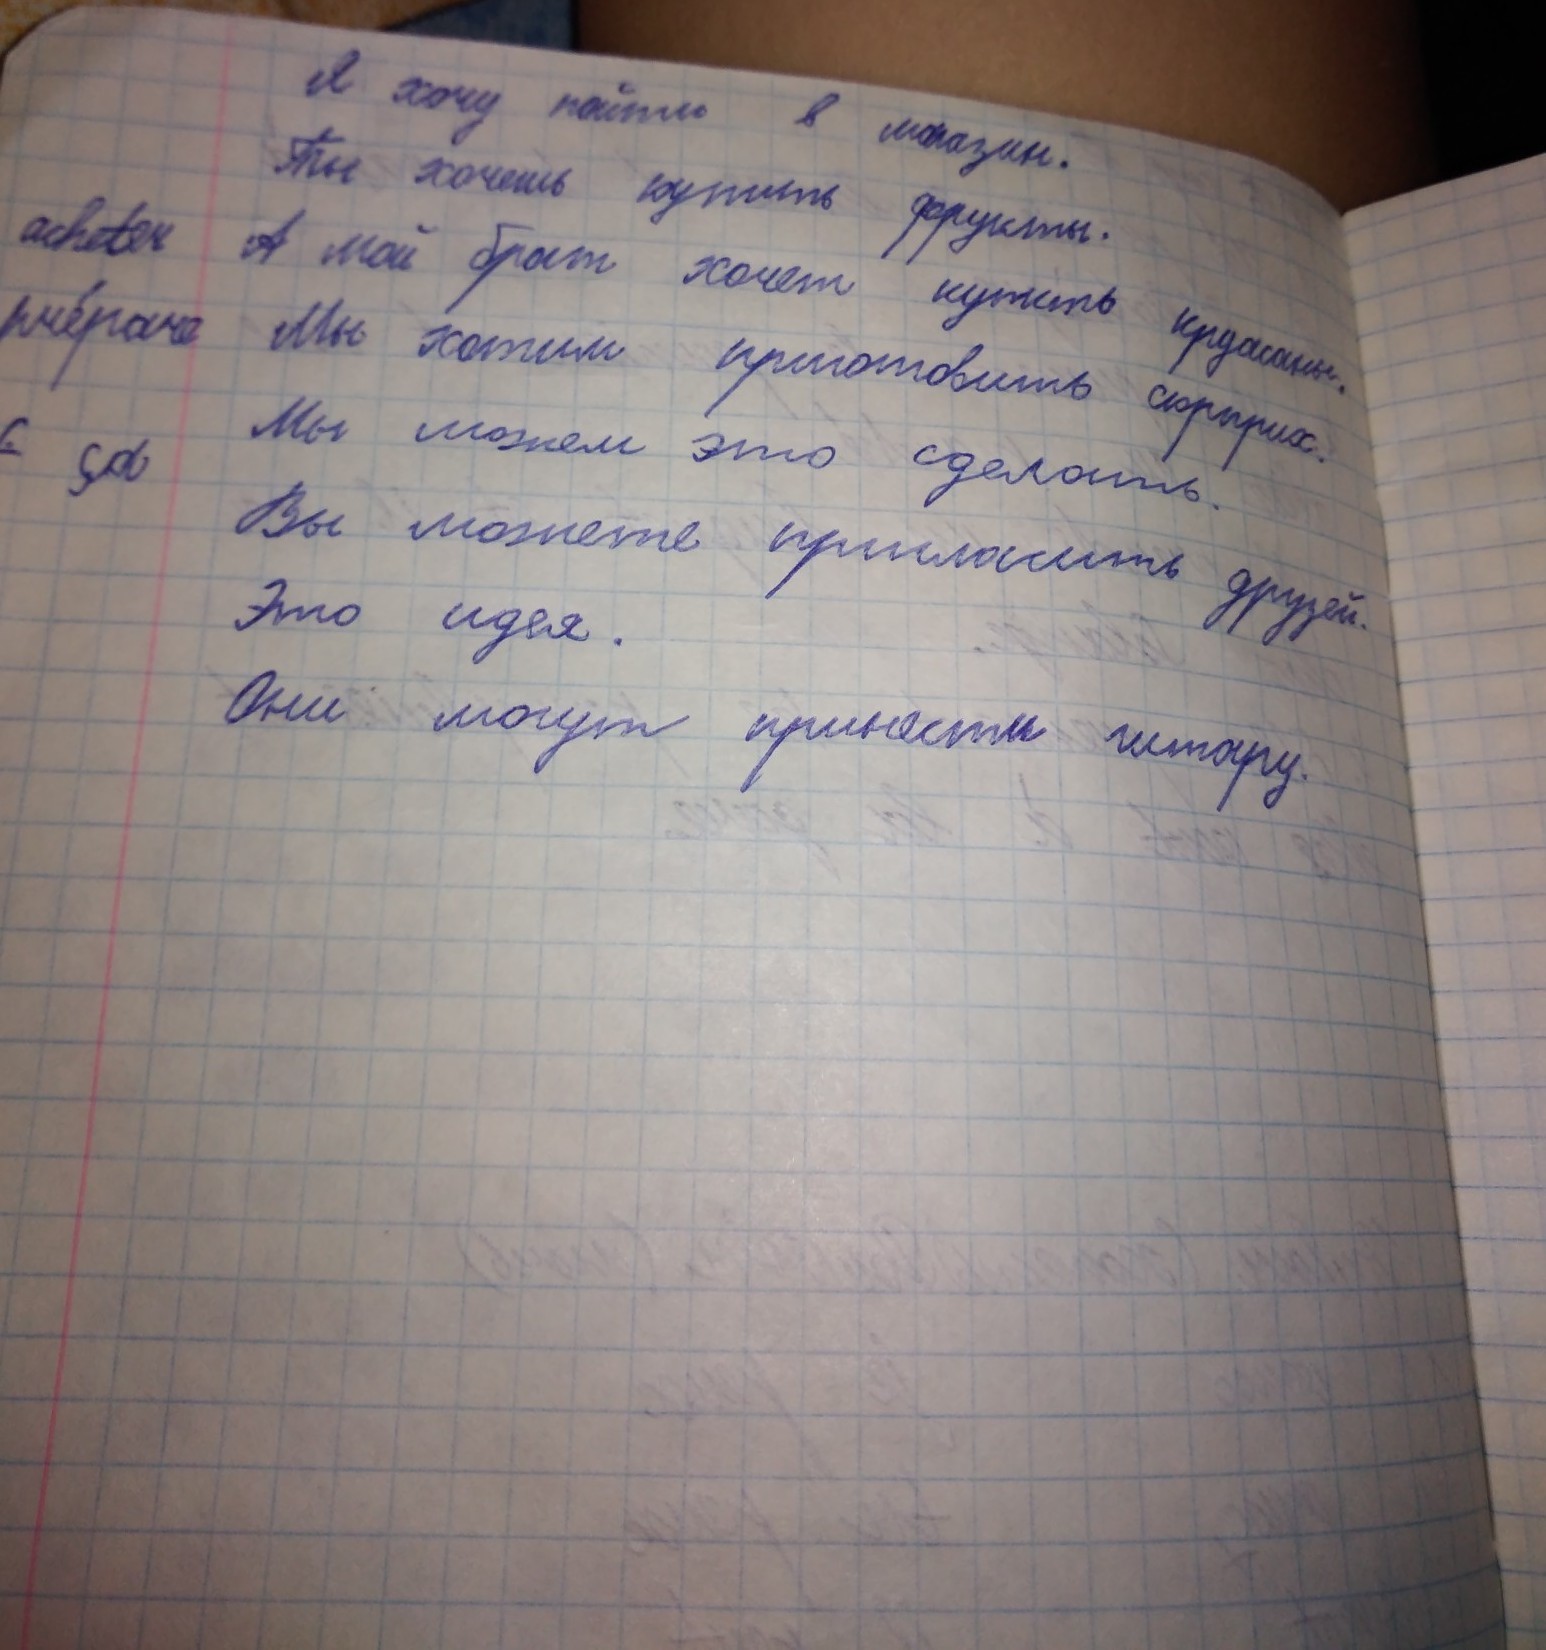 Я хочу пойти в магазин.
Ты хочешь купить фрукты.
acheter А мой брат хочет купить круасаны.
Мы хотим приготовить сюрприз.
ça Мы можем это сделать.
Вы можете пригласить друзей.
Это идея.
Они могут принести гитару.